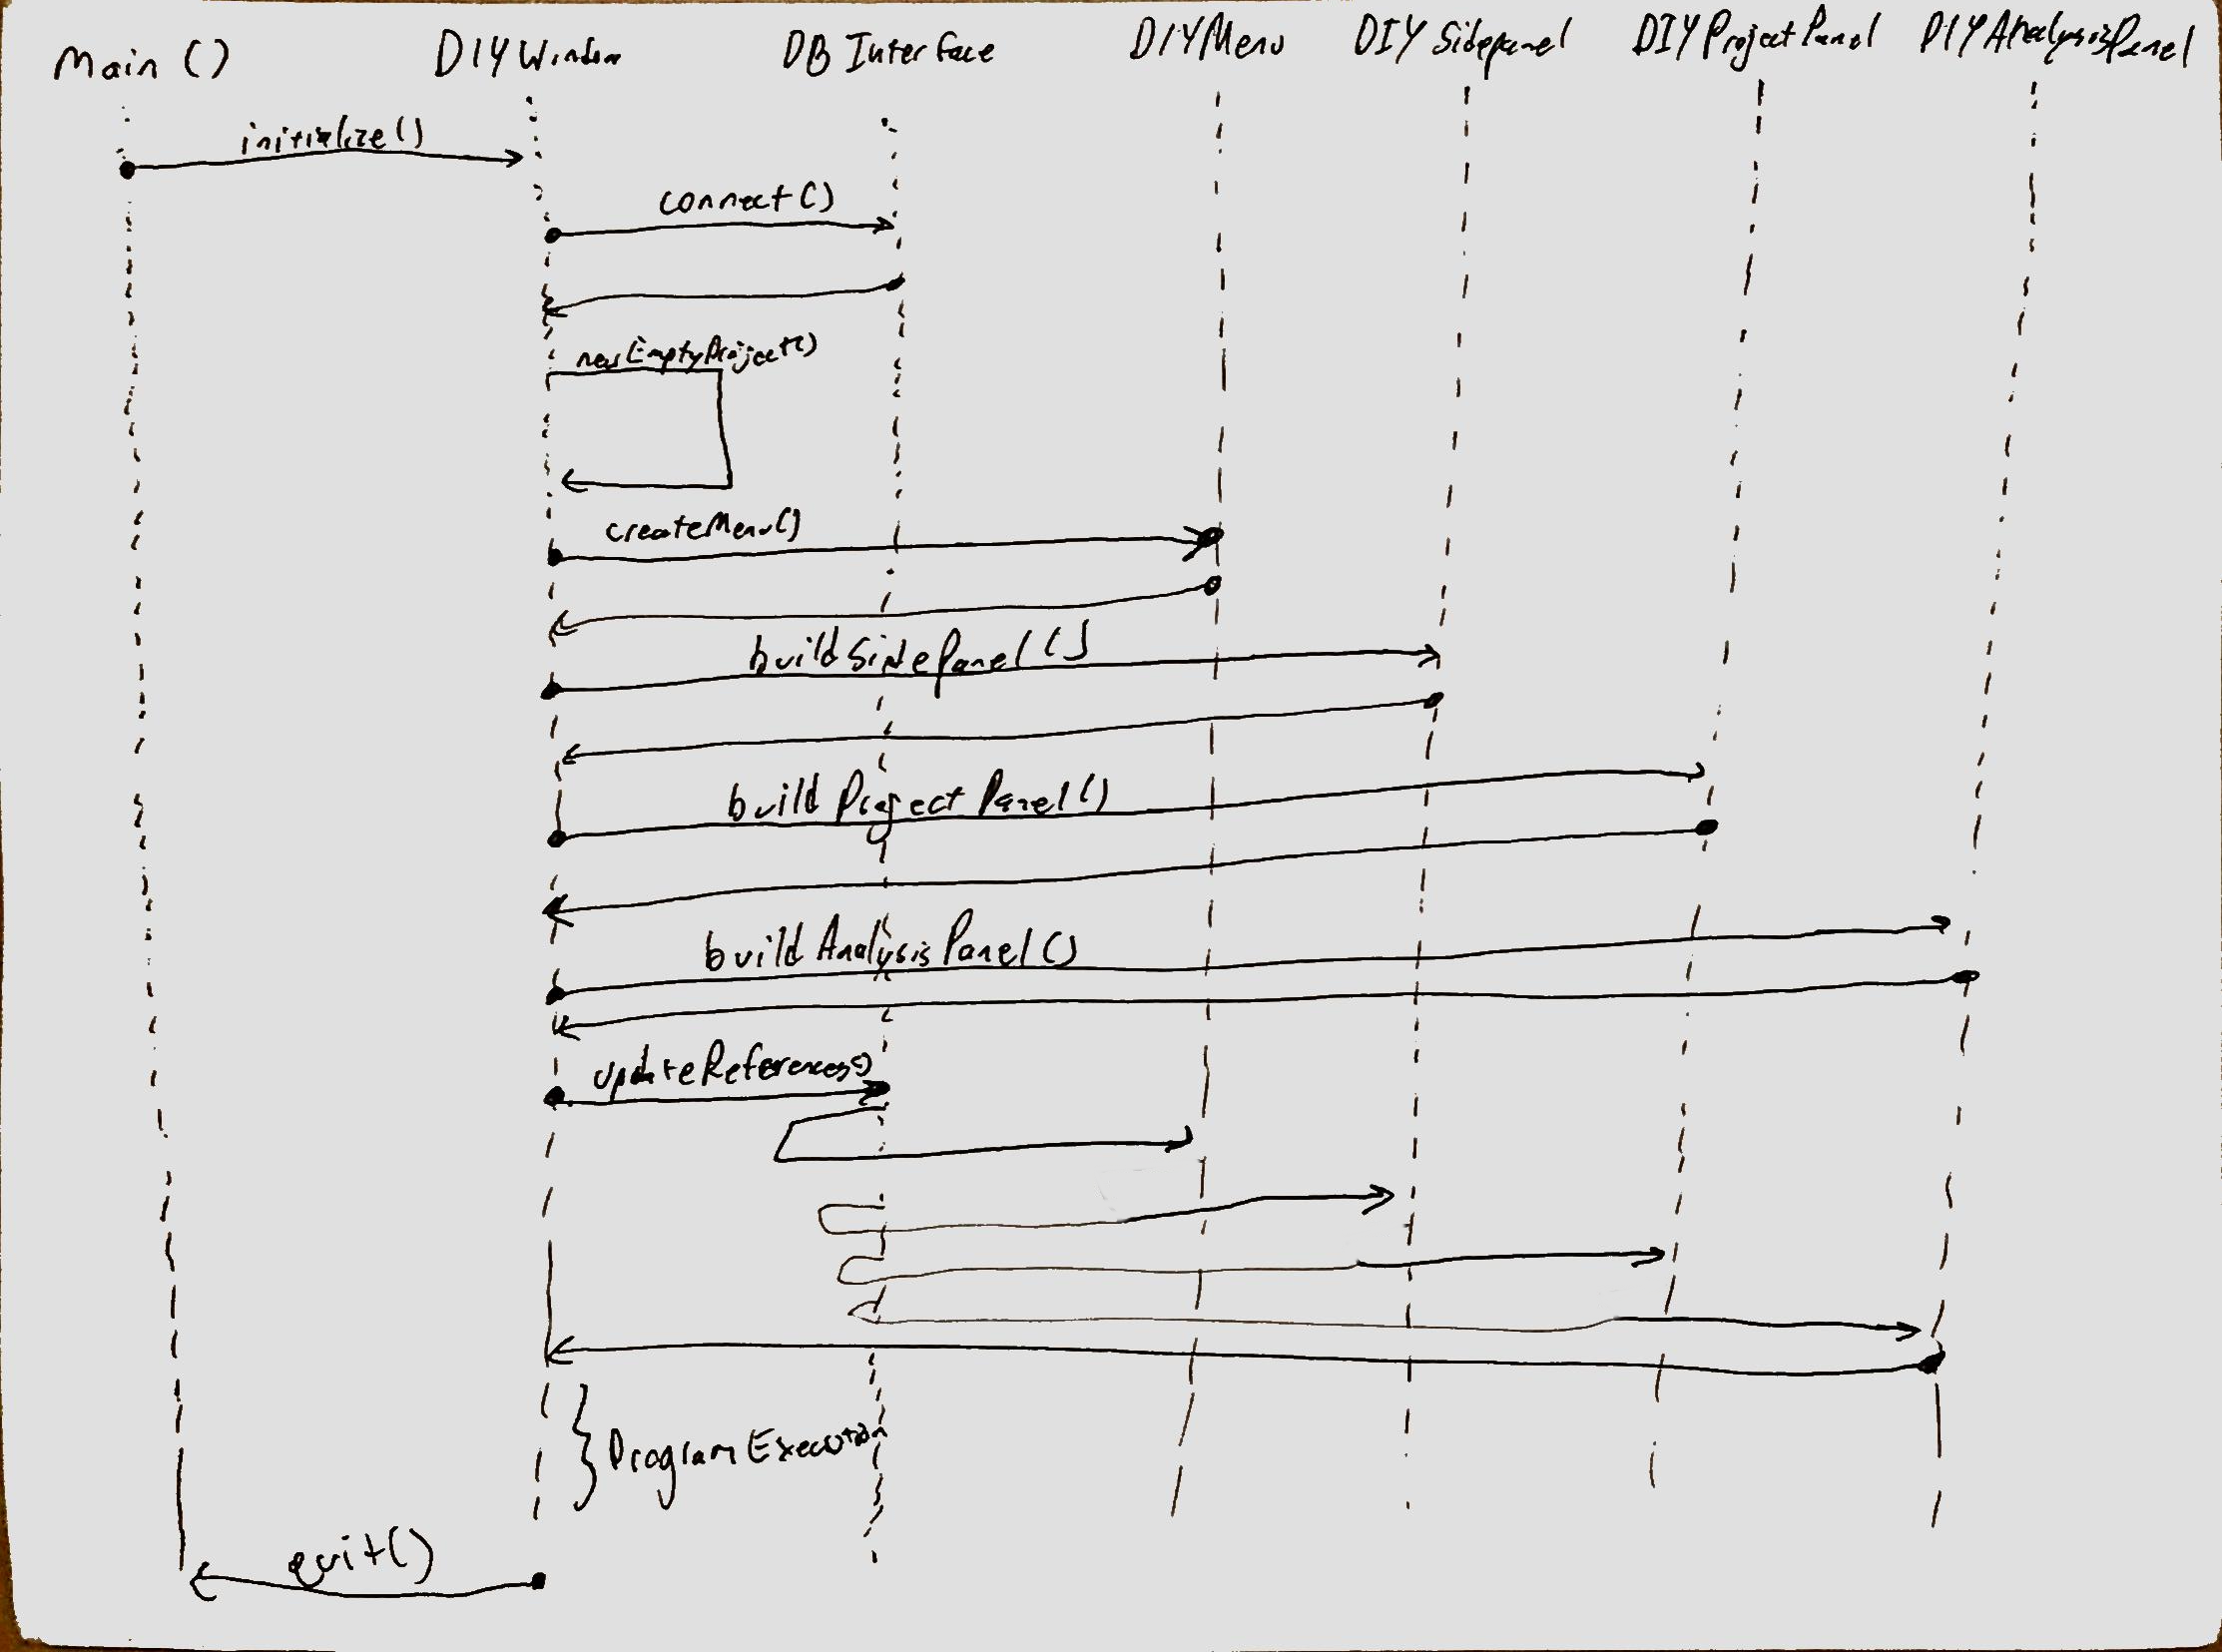 Main () DIYWindow DB Interface DIYMenu DIY Sidepanel DIYProjectPanel DIYAnalysisPanel
initialize()
connect()
newEmptyProject()
createMenu()
buildSidePanel()
buildProjectPanel()
buildAnalysisPanel()
updateReferences()
} ProgramExecution
quit()